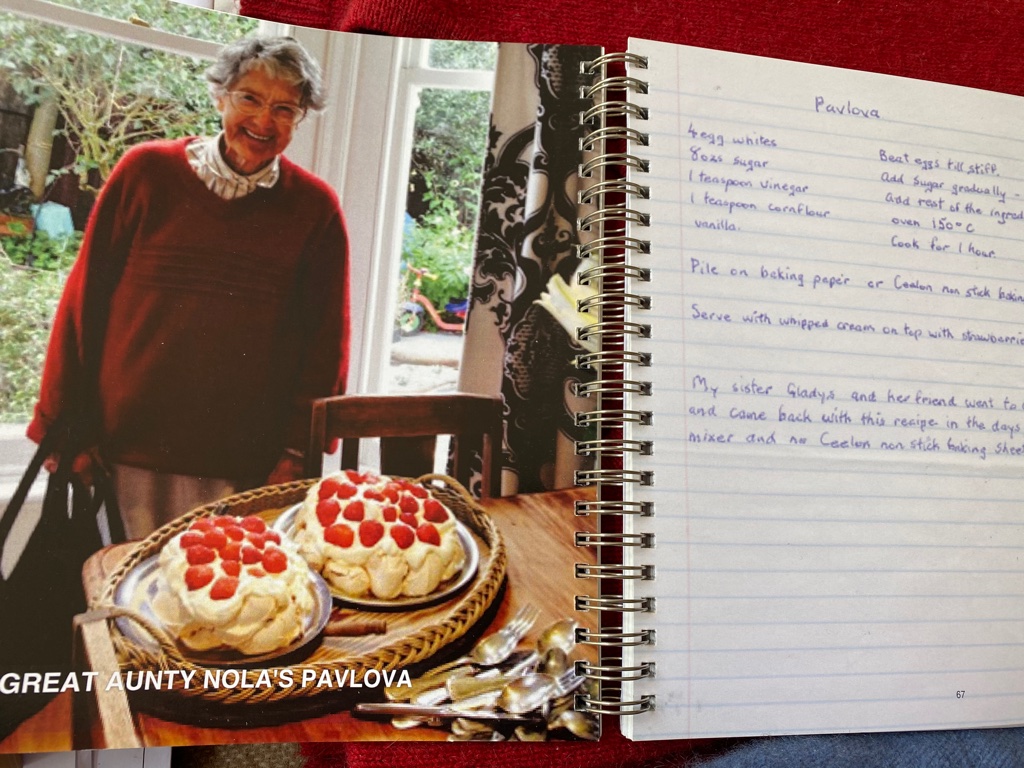 GREAT AUNTY NOLA'S PAVLOVA
Pavlova
4 egg whites
8ozs sugar
1 teaspoon vinegar
1 teaspoon cornflour
vanilla.
Beat eggs till stiff.
Add sugar gradually -
add rest of the
oven 150°C
Cook for 1 hour.
Pile on baking paper or Ceelon non stick
Serve with whipped cream on top with
My sister Gladys and her friend went to
and came back with this recipe in the days
mixer and no Ceelon non stick baking
67